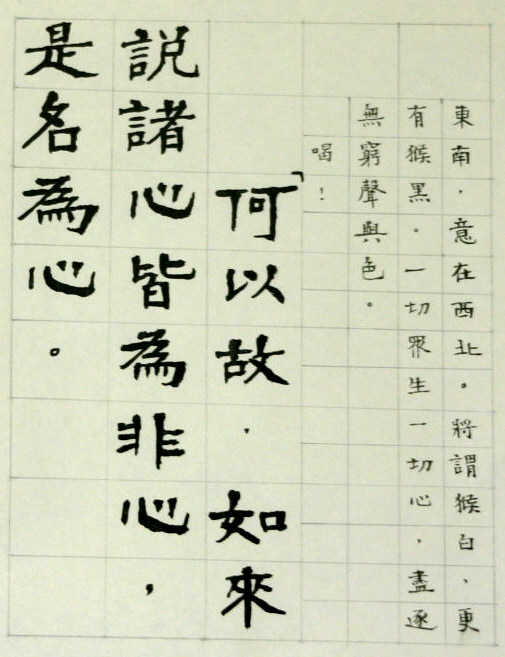 東南,意在西北。將謂猴白,更
有猴黑。一切眾生一切心,盡逐
無窮聲與色。
喝!
「何以故,如來
說諸心皆為非心,
是名為心。